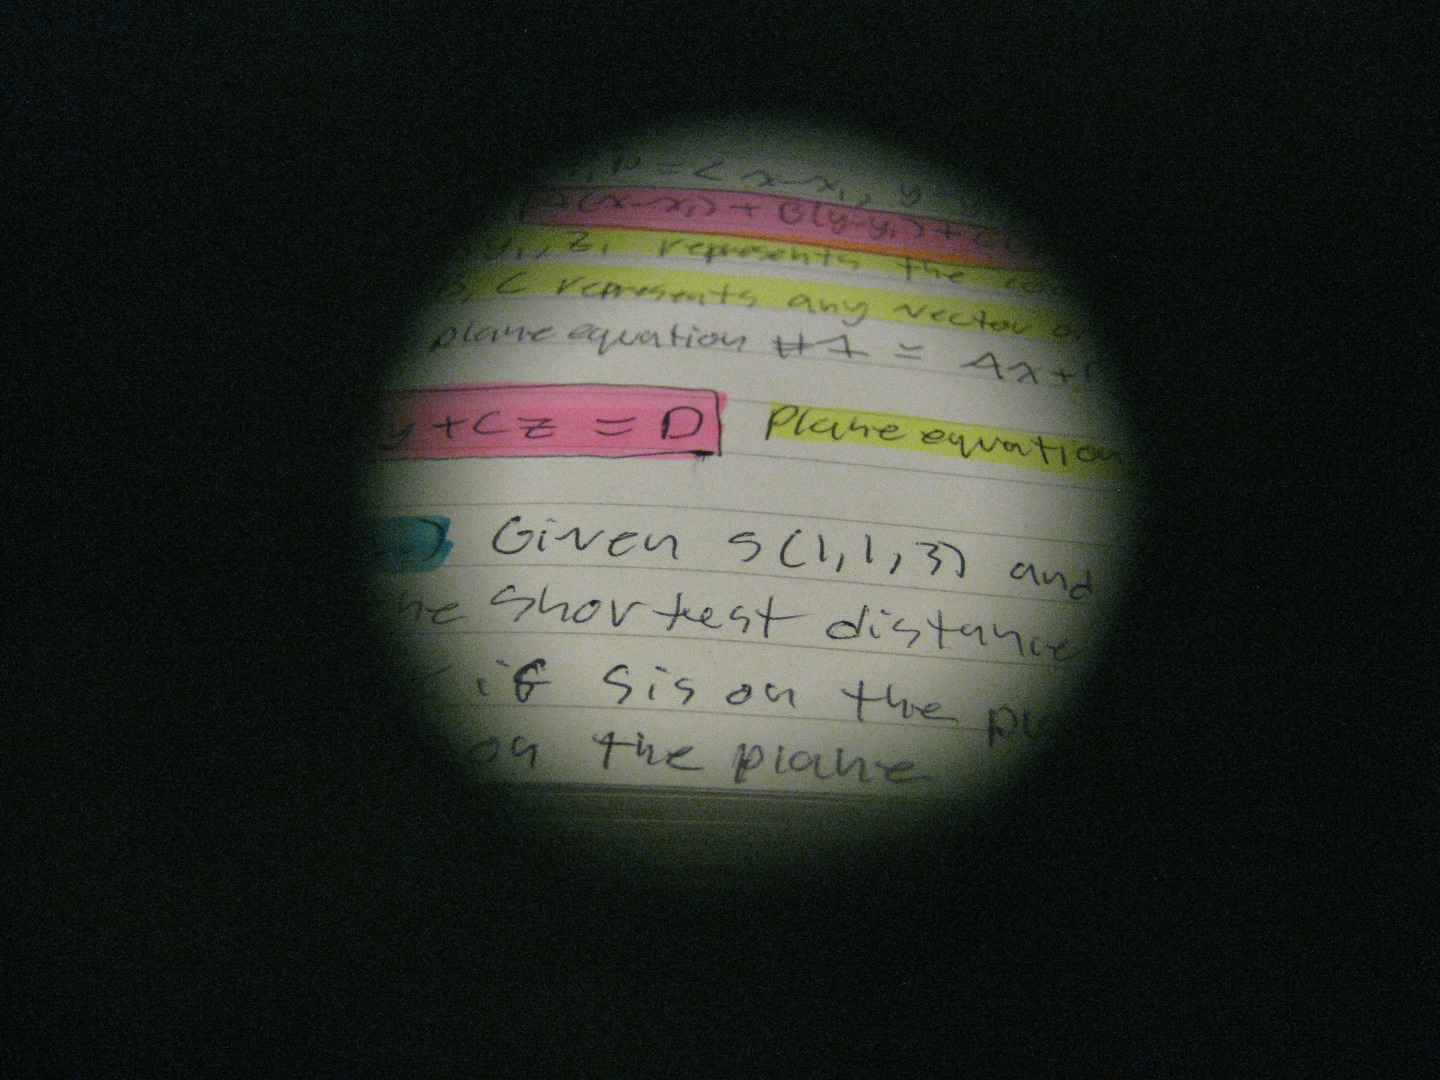 = < x-x₁, y
(x-x₁) + B(y-y₁) +
y₁, z₁ represents the
, C represents any vector
plane equation #1 = Ax+
y + Cz = D Plane equation
Given S(1,1,3) and
the shortest distance
if S is on the
on the plane